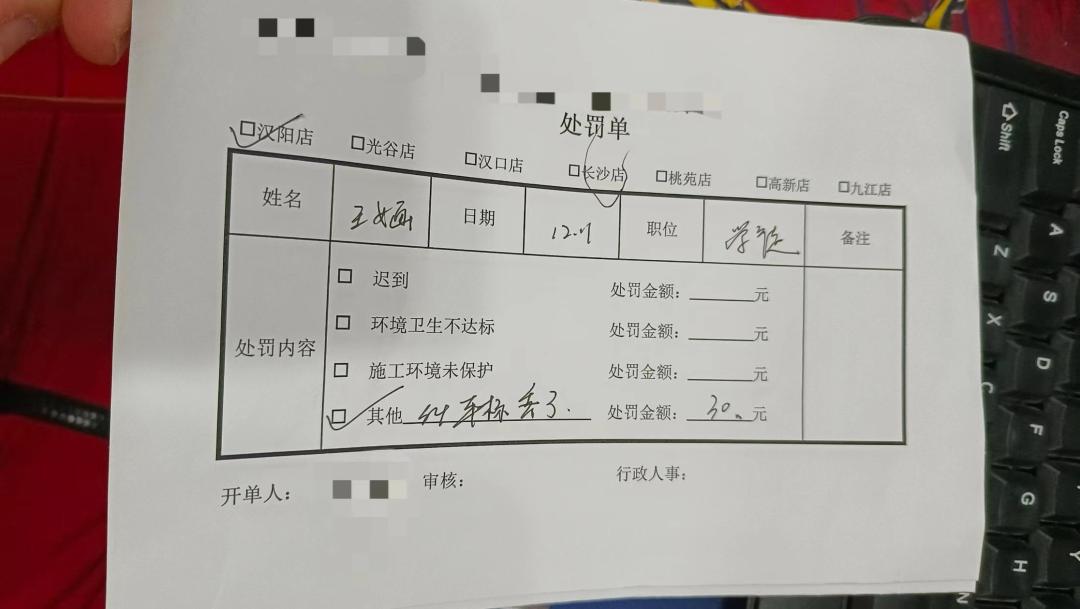 处罚单
□汉阳店 □光谷店 □汉口店 □长沙店 □桃苑店 □高新店 □九江店
姓名 王 日期 职位 学徒 备注
处罚内容
□ 迟到 处罚金额：______元
□ 环境卫生不达标 处罚金额：______元
□ 施工环境未保护 处罚金额：______元
□ 其他 车标丢了. 处罚金额：元
开单人： 审核： 行政人事：
Caps Lock
Shift
A
Z
S
X
D
C
F
G
H
N